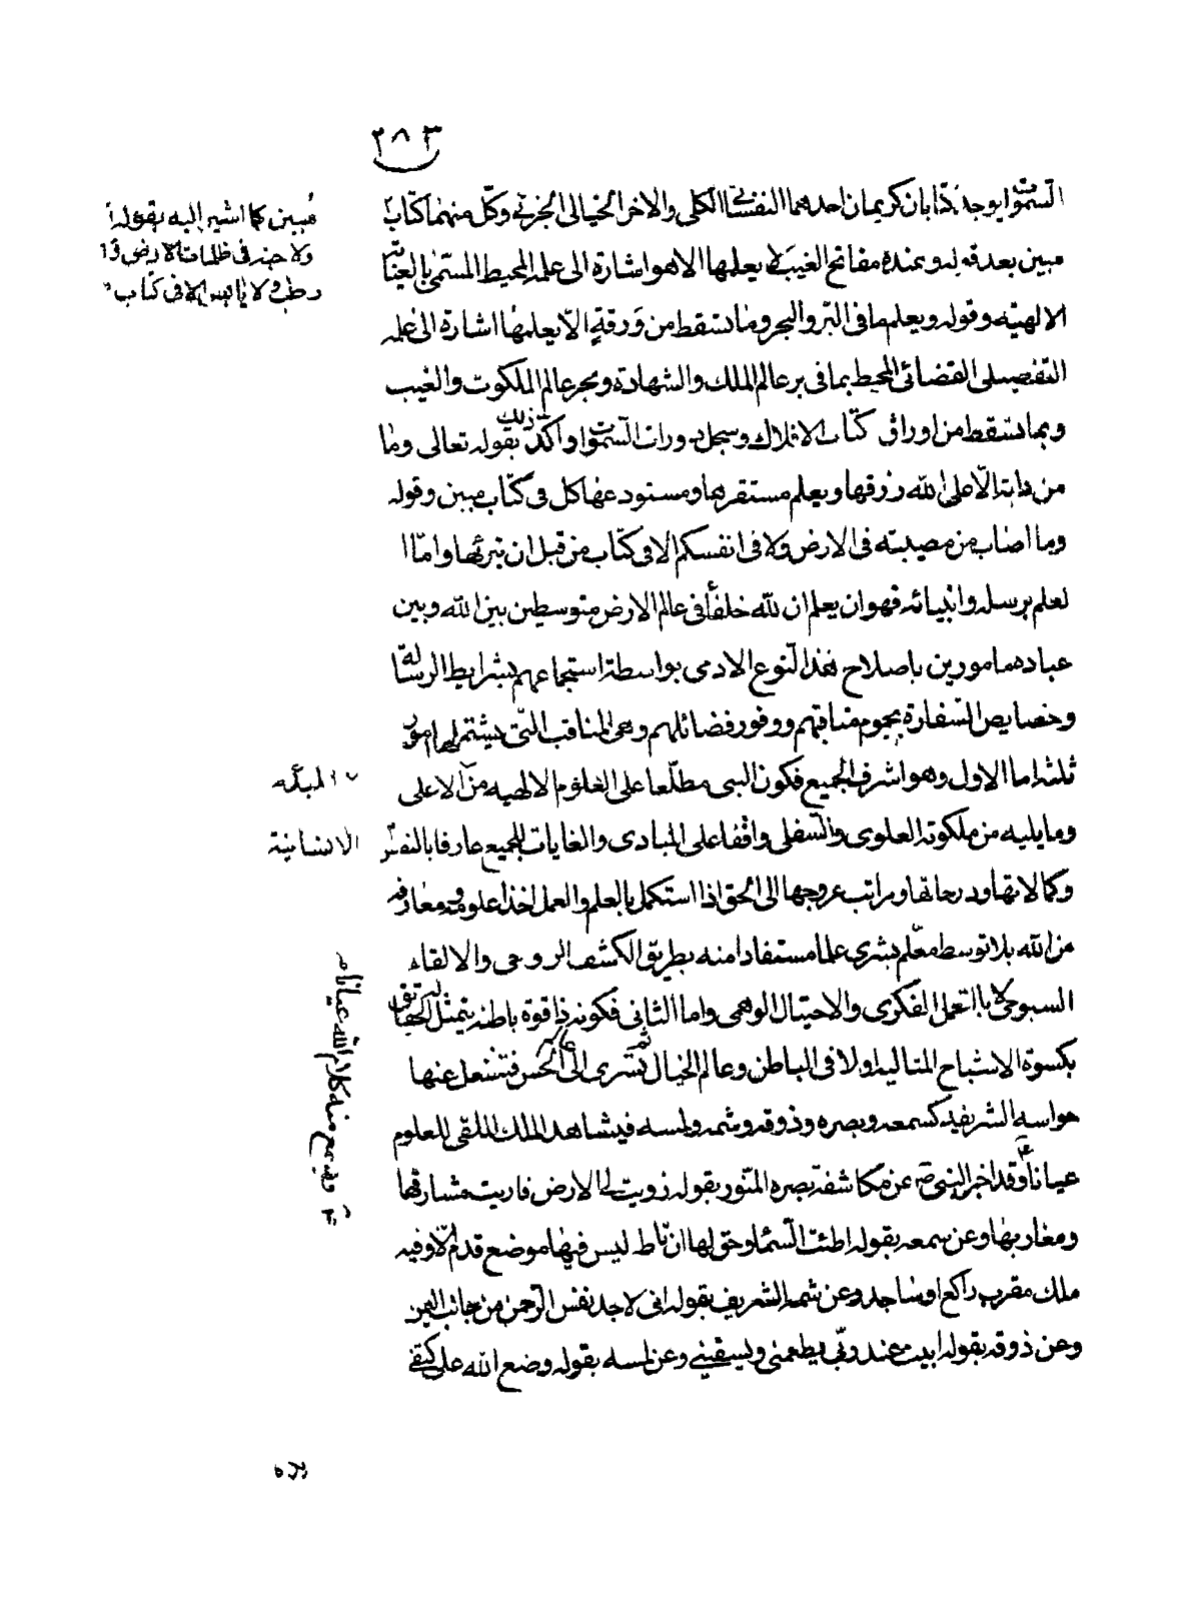 ٢٨٣
السموات يوجد كتابان كريمان احدهما النفساني الكلي والاخر الخيالي الجزئي وكل منهما كتاب
مبين بعد قوله وعنده مفاتح الغيب لا يعلمها الا هو اشارة الى علمه المحيط المسمى بالعناية
الالهية وقوله ويعلم ما في البر والبحر وما تسقط من ورقةٍ الّا يعلمها اشارة الى علمه
التفصيلي القضائي المحيط بما في بر عالم الملك والشهادة وبحر عالم الملكوت والغيب
وبما تسقط من اوراق كتاب الافلاك وسجل دورات السموات واكّد ذلك بقوله تعالى وما
من دابة الّا على الله رزقها ويعلم مستقرها ومستودعها كل في كتاب مبين وقوله
وما اصاب من مصيبته في الارض ولا في انفسكم الا في كتاب من قبل ان نبرئها واما ا
لعلم برسله وانبيائه فهو ان يعلم ان لله خلفاء في عالم الارض متوسطين بين الله وبين
عباده مامورين باصلاح هذا النوع الادمي بواسطة استجماعهم بشرايط الرسالة
وخصايص السفارة بهجوم مناقبهم ووفور فضائلهم وهي المناقب التي يشتملها امور
ثلثة اما الاول وهو اشرف الجميع فكون النبي مطلعا على العلوم الالهيه من الاعلى
وما يليه من ملكوته العلوي والسفلي واقفا على المبادي والغايات للجميع عارفا بالنفس
وكمالاتها ودرجاتها ومراتب عروجها الى الحق اذا استكمل بالعلم والعمل اخذا علومه ومعارفه
من الله بلا توسط معلّم بشري علما مستفادا منه بطريق الكشف الروحي والالقاء
السبوحي لا بالتعمل الفكري والاحتيال الوهمي واما الثاني فكونه ذا قوة باطنه يتمثل له الحقايق
بكسوة الاشباح المثالية اولا في الباطن وعالم الخيال ثم تسرى الى الحس فتنفعل عنها
حواسه الشريفة كسمعه وبصره وذوقه وشمه ولمسه فيشاهد الملك الملقي للعلوم
عيانا وقد اخبر النبي ص عن مكاشفة بصره المنور بقوله زويت لي الارض فاريت مشارقها
ومغاربها وعن سمعه بقوله اطئت السماء وحق لها ان تاط ليس فيها موضع قدم الّا وفيه
ملك مقرب راكع او ساجد وعن شمه الشريف بقوله اني لاجد نفس الرحمن من جانب اليمن
وعن ذوقه بقوله ابيت عند ربّي يطعمني ويسقيني وعن لمسه بقوله وضع الله على كتفي
مُبين كما اشير اليه بقوله
ولا حبة في ظلمات الارض ولا
رطب ولا يابس الا في كتاب
المبدء
الانسانية
ويسمع منه كلام الله عيانا